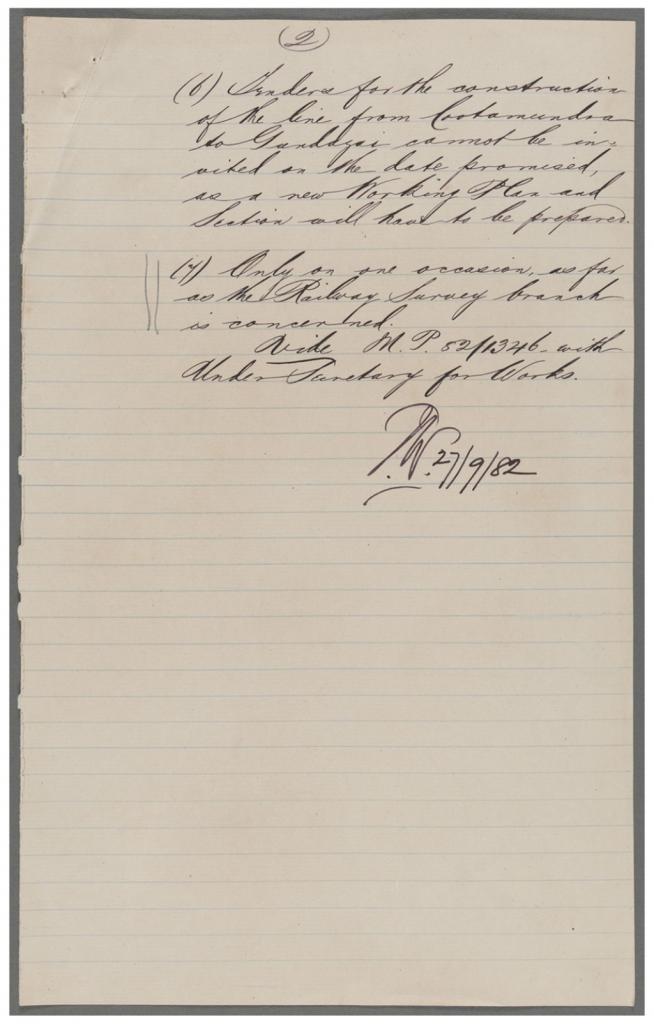 (2)
(6) Tenders for the construction
of the line from Cootamundra
to Gundagai cannot be in-
vited on the date promised,
as a new Working Plan and
Section will have to be prepared.
(7) Only on one occasion, as far
as the Railway Survey branch
is concerned.
Vide M. P. 82/1346 with
Under Secretary for Works.
27/9/82